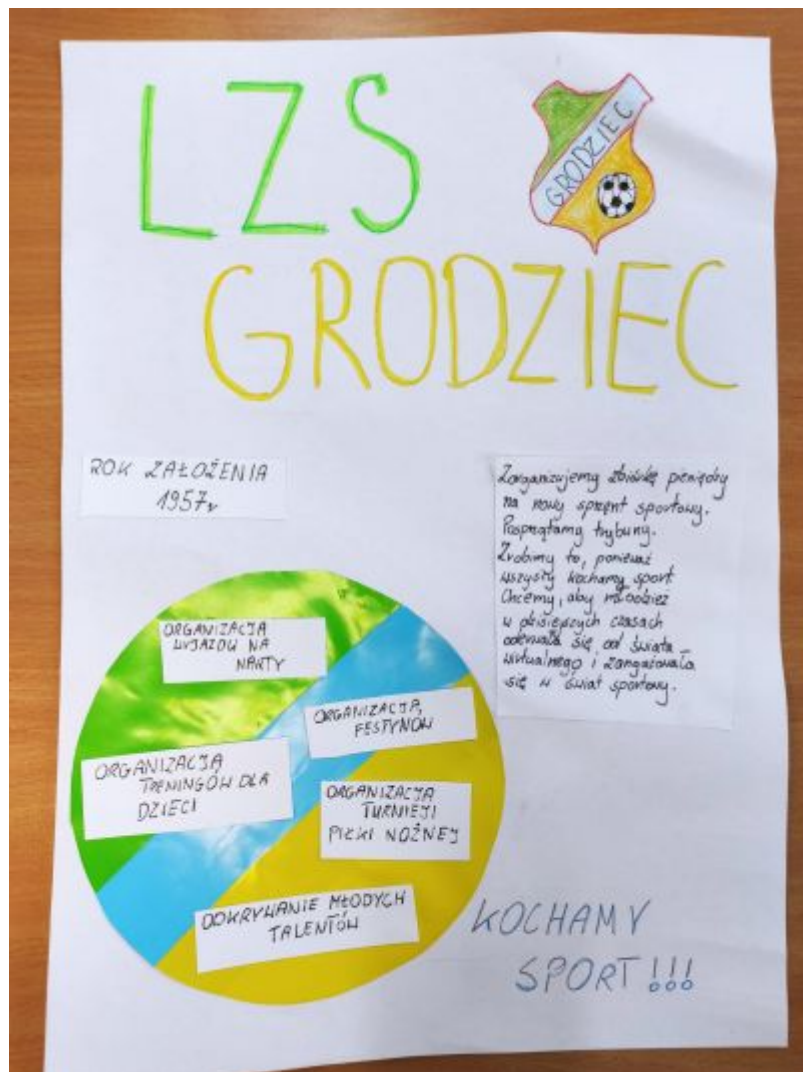 LZS
GRODZIEC
GRODZIEC
ROK ZAŁOŻENIA
1957r
Zorganizujemy zbiórkę pieniędzy
na nowy sprzęnt sportowy.
Posprzątamy trybuny.
Zrobimy to, ponieważ
wszysty kochamy sport
Chcemy, aby młodzież
w dzisiejszych czasach
oderwała się od świata
wirtualnego i zangażowała
się w świat sportowy.
ORGANIZACJA
WYJAZDU NA
NARTY
ORGANIZACJA
FESTYNÓW
ORGANIZACJA
TRENINGÓW DLA
DZIECI
ORGANIZACJA
TURNIEJI
PIŁKI NOŻNEJ
ODKRYWANIE MŁODYCH
TALENTÓW
KOCHAMY
SPORT!!!